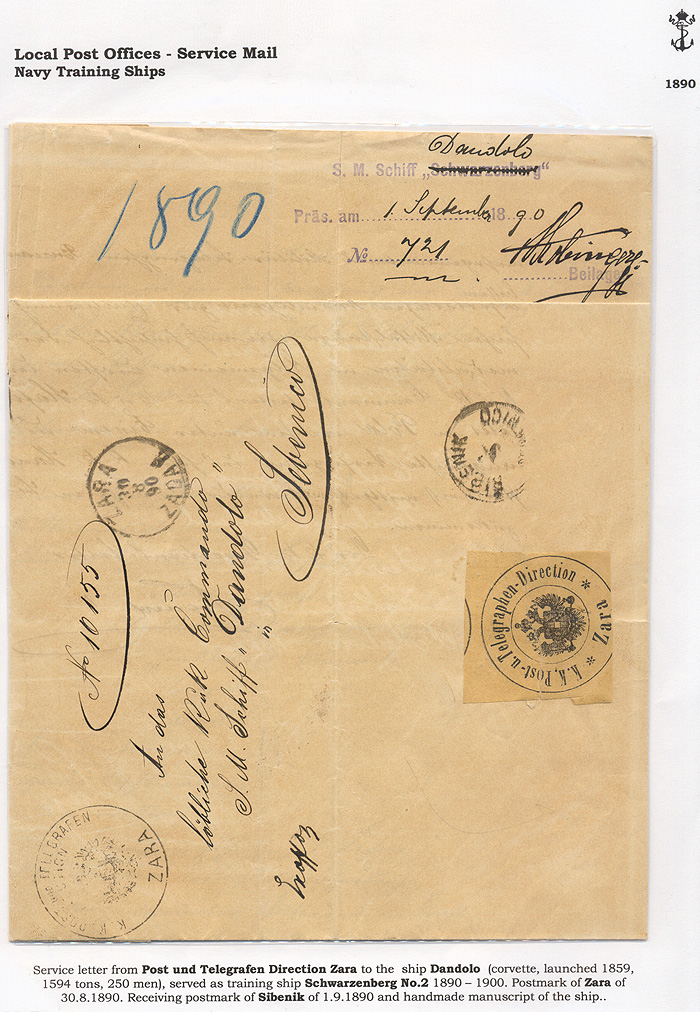 Local Post Offices - Service Mail
Navy Training Ships
1890
1890
Dandolo
S. M. Schiff „Schwarzenberg“
Präs. am 1. September 1890
No 721
Beilage
ZARA
30
8
90
ZADAR
SIBENIK
No 10155
An das
löbliche K.u.K. Commando
S. M. Schiff „Dandolo“
in
Sebenico
K. K. Post- u. Telegraphen-Direction * Zara *
ZARA
Service letter from Post und Telegrafen Direction Zara to the ship Dandolo (corvette, launched 1859,
1594 tons, 250 men), served as training ship Schwarzenberg No.2 1890 – 1900. Postmark of Zara of
30.8.1890. Receiving postmark of Sibenik of 1.9.1890 and handmade manuscript of the ship..